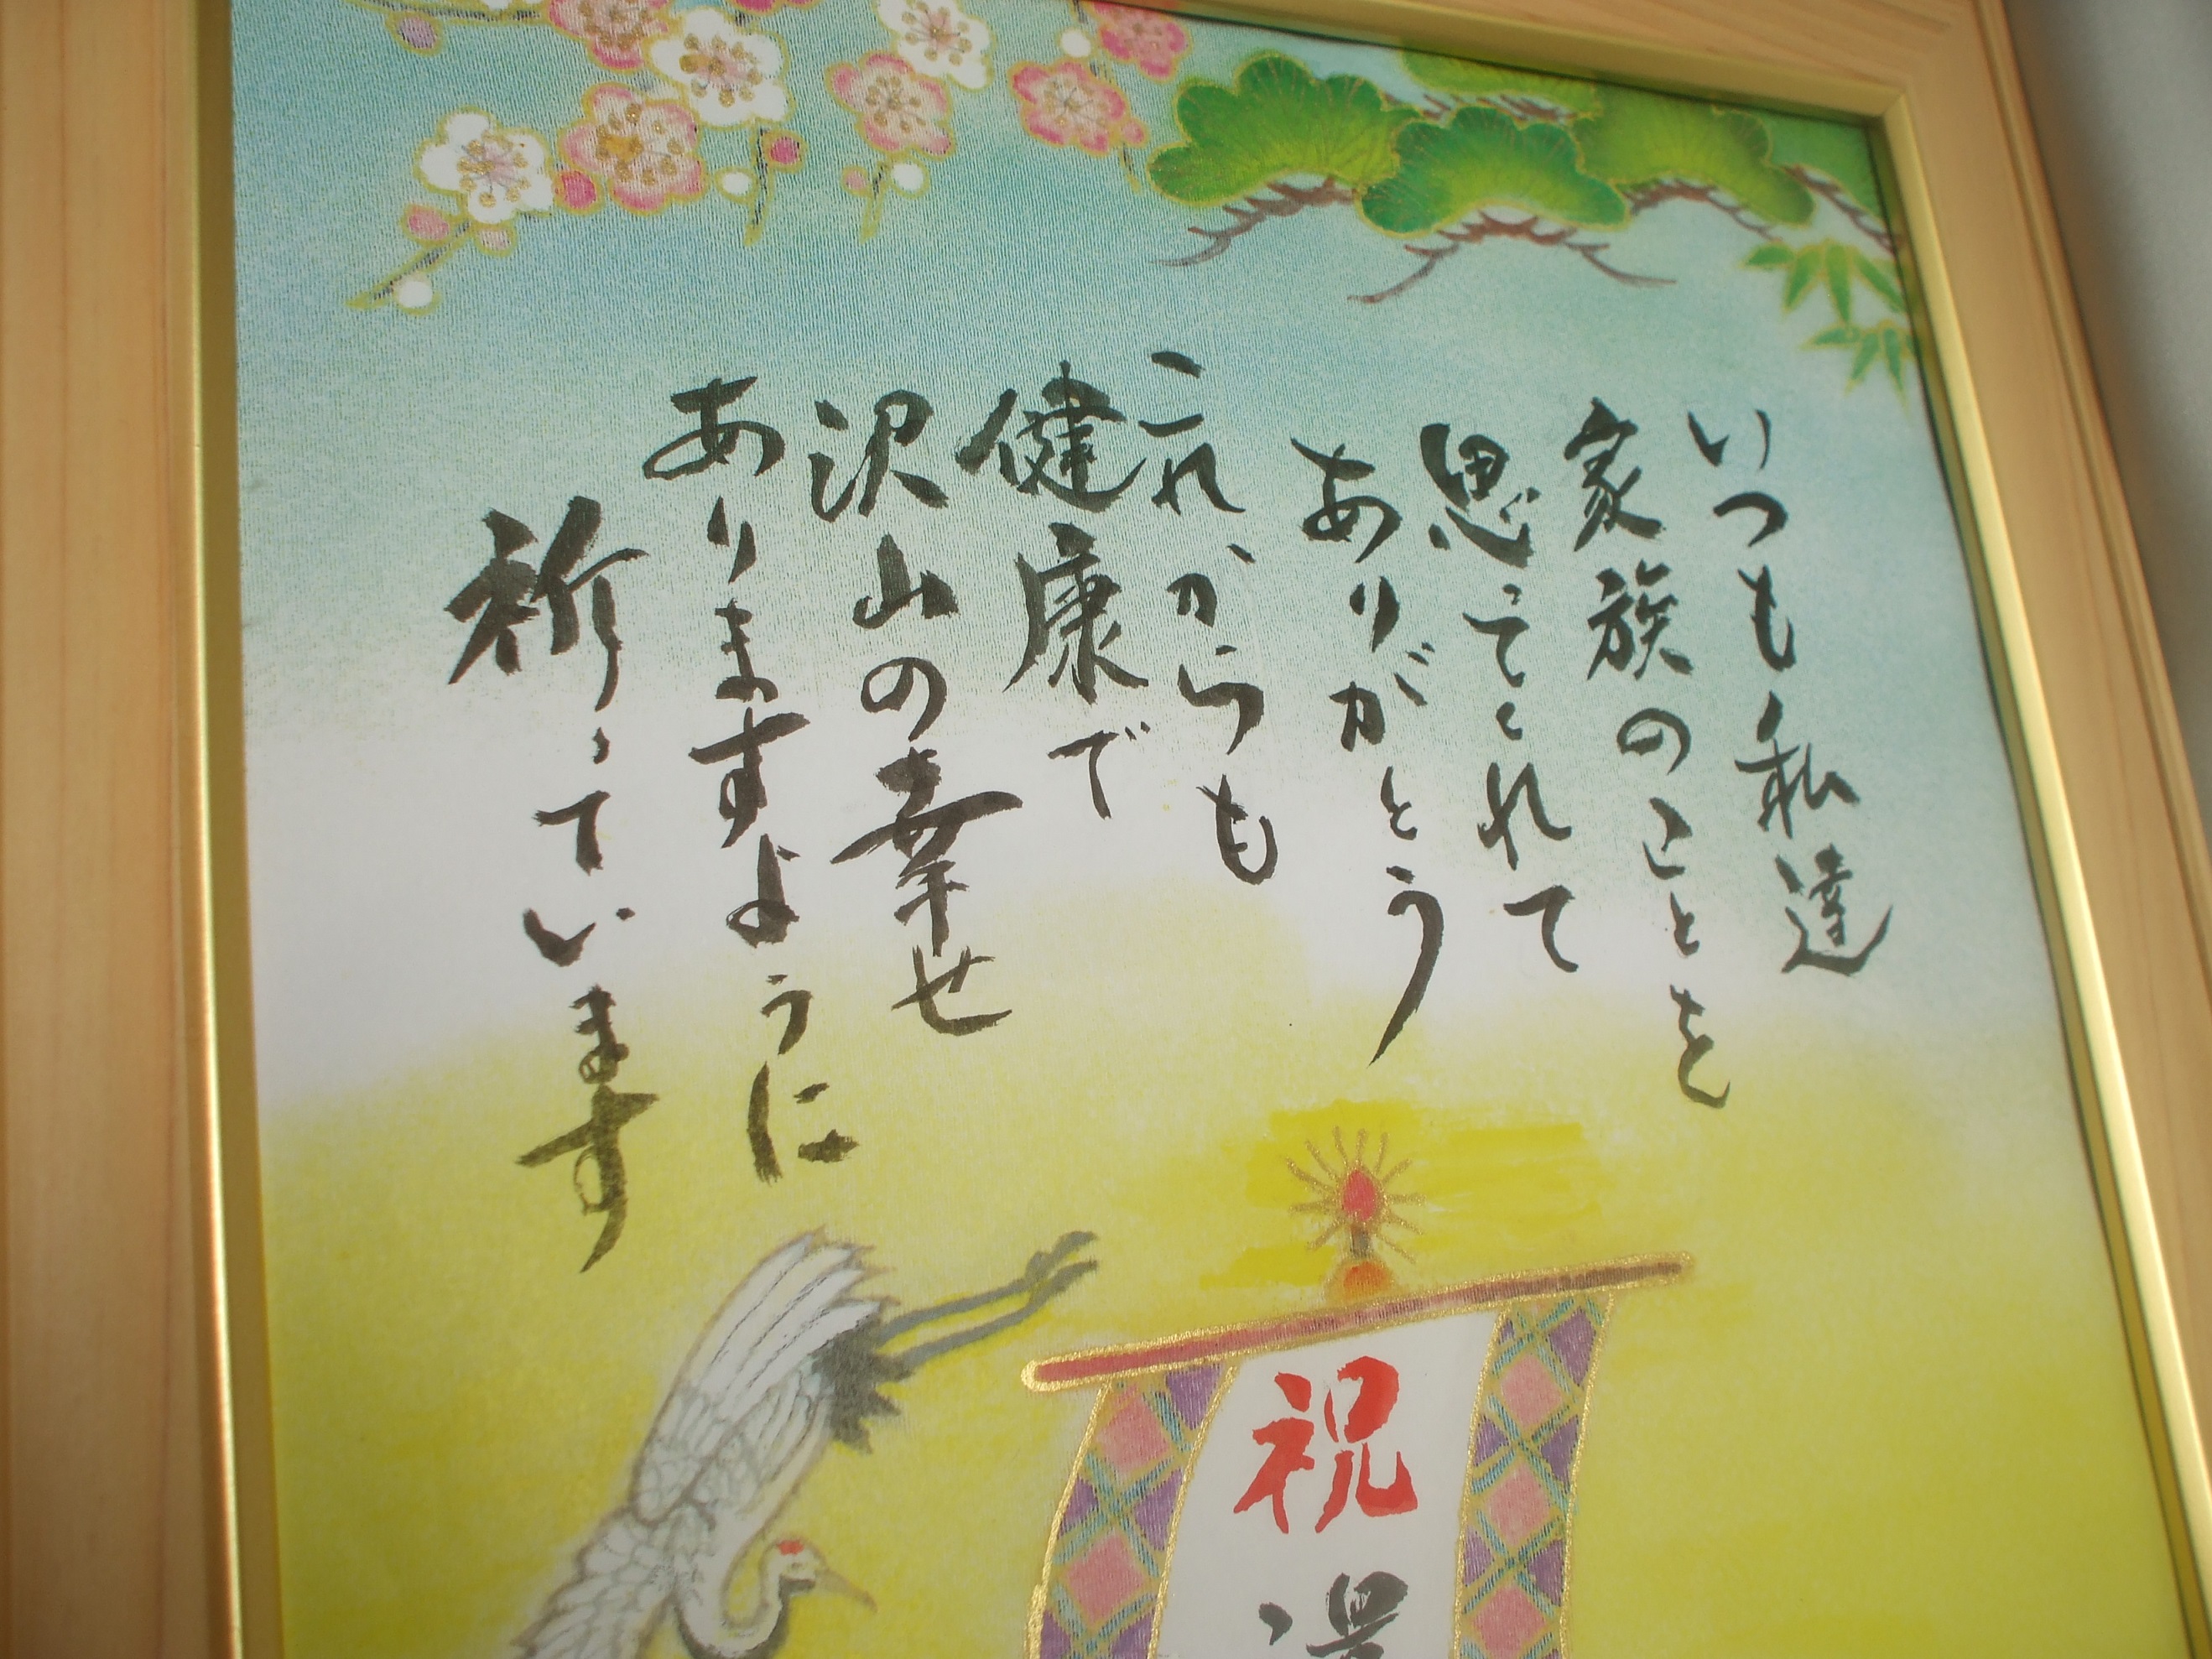 いつも私達
家族のことを
思ってくれて
ありがとう
これからも
健康で
沢山の幸せ
ありますように
祈っています
祝